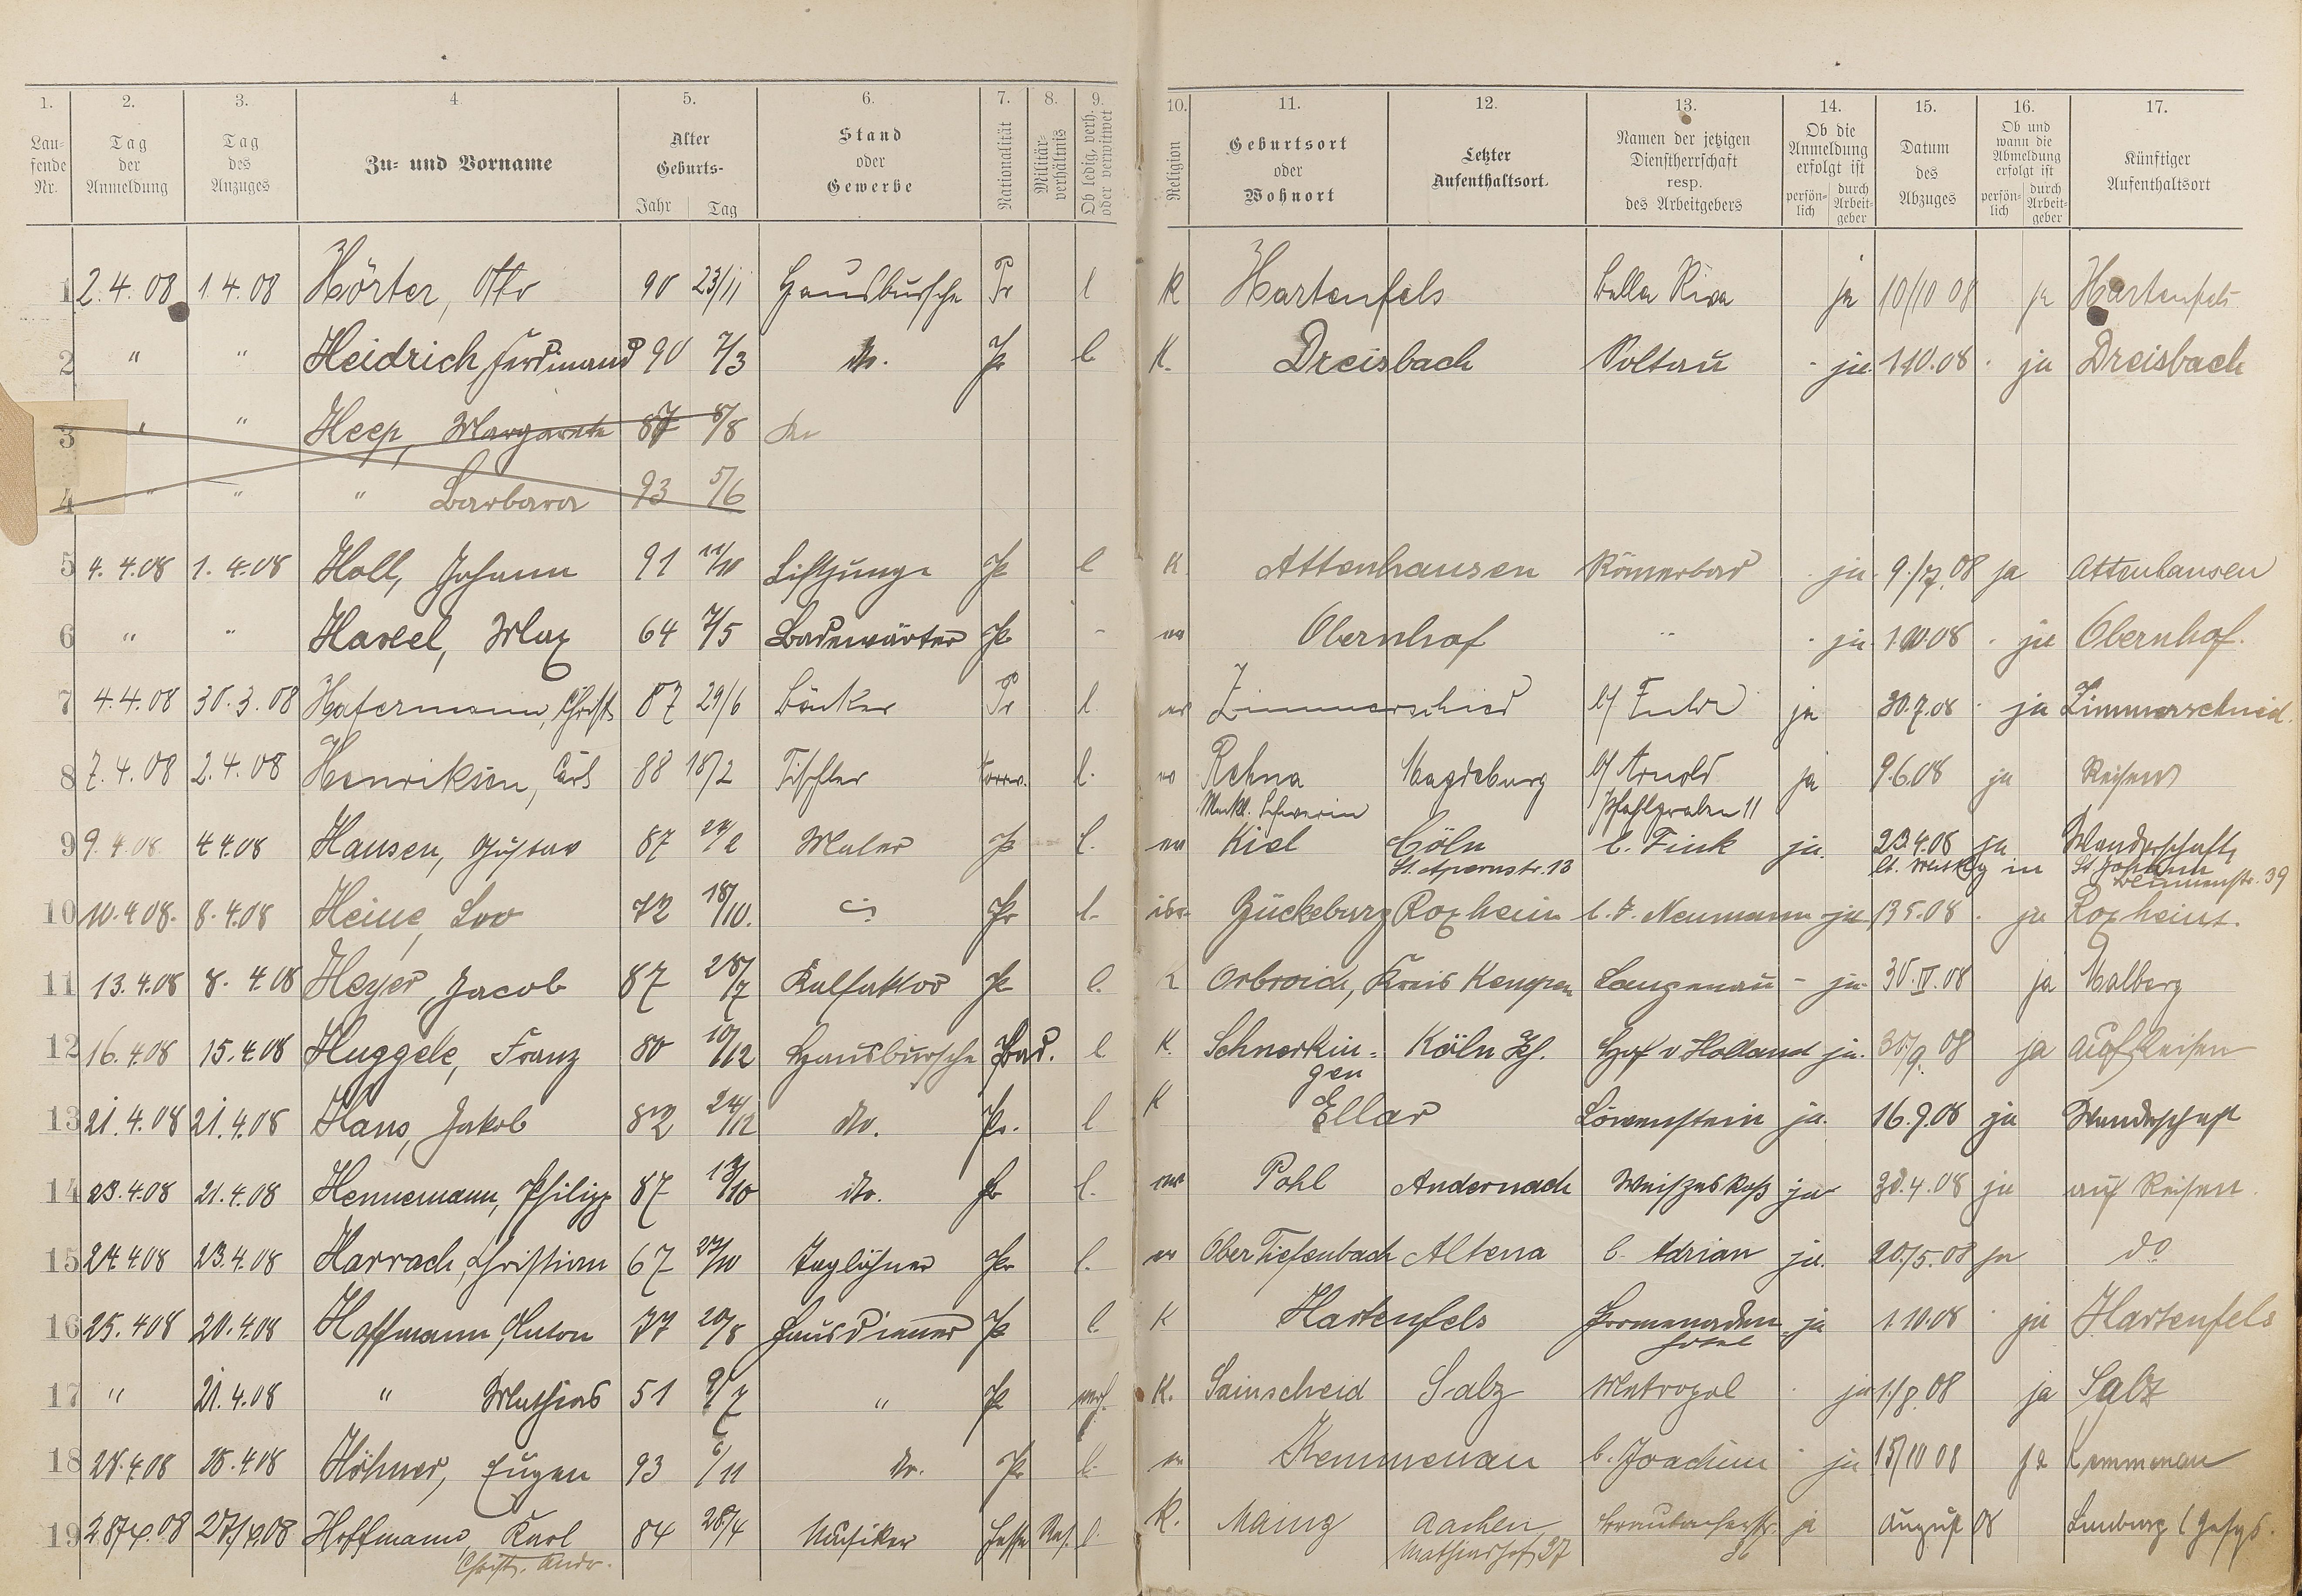 1. 2. 3. 4. 5. 6. 7. 8. 9. 10. 11. 12. 13. 14. 15. 16. 17.
Laufende Nr. Tag der Anmeldung Tag des Anzuges Zu- und Vorname Alter Geburts- Jahr Tag Stand oder Gewerbe Nationalität Militärverhältnis Ob ledig, verh. oder verwitwet Religion Geburtsort oder Wohnort Letzter Aufenthaltsort. Namen der jetzigen Dienstherrschaft resp. des Arbeitgebers Ob die Anmeldung erfolgt ist persönlich durch Arbeitgeber Datum des Abzuges Ob und wann die Abmeldung erfolgt ist persönlich durch Arbeitgeber Künftiger Aufenthaltsort
1 2.4.08 1.4.08 Hörter, Otto 90 23/11 Hausbursche Pr l K Hartenfels Bella Riva ja 10/10 08 ja Hartenfels
2 " " Heidrich, Ferdinand 90 7/3 do. Pr l K. Dreisbach Soltau - ja 1.10.08 ja Dreisbach
3 " " Heep, Margarete 87 8/8 do
4 " " " Barbara 93 5/6
5 4.4.08 1.4.08 Holl, Johann 91 11/10 Liftjunge Pr l K Attenhausen Römerbad ja 9./7.08 ja Attenhausen
6 " " Hasel, Max 64 7/5 Badewärter Pr - ev Obernhof " ja 1.10.08 ja Obernhof.
7 4.4.08 30.3.08 Hafermann, Christ. 87 29/6 Bäcker Pr l. ev Zimmerschied ja 30.7.08 ja Zimmerschied.
8 7.4.08 2.4.08 Henriksen, Carl 88 18/2 Tischler Norw. l. ev Rehna Magdeburg b/ Arnold ja 9.6.08 ja Reisend
Meckl. Schwerin Pfahlgraben 11
9 9.4.08 4.4.08 Hansen, Gustav 87 24/2 Maler Pr l. ev Kiel Cöln b. Fink ja. 23.4.08 ja Wanderschaft,
St. Apernstr. 13 in St Johann 39
10 10.4.08. 8.4.08 Heine, Leo 72 18/10. Pr l. isr. Bückeburg Roxheim b. F. Neumann ja 13 5.08 ja Roxheim.
11 13.4.08 8.4.08 Heyer, Jacob 87 28/7 Kalfaktor Pr l. K Orbroich, Kreis Kempen Langenau - ja 30.IV.08 ja Malberg
12 16.4.08 15.4.08 Huggele, Franz 80 10/12 Hausbursche Bad. l K. Schnerkin= Köln Hof v Holland ja. 30/9.08 ja auf Reisen
gen
13 21.4.08 21.4.08 Hans, Jakob 82 24/12 do. Pr. l K Ellar Löwenstein ja. 16.9.08 ja Wanderschaft
14 23.4.08 21.4.08 Hennemann, Philipp 87 13/10 do. Pr l. ev Pohl Andernach Weißes Roß ja 30.4.08 ja auf Reisen.
15 24.4.08 23.4.08 Harrach, Christian 67 27/10 Taglöhner Pr l. ev Ober Tiefenbach Altena b. Adrian ja. 20./5.08 ja do
16 25.4.08 20.4.08 Hoffmann, Anton 77 20/8 Hausdiener Pr l. K Hartenfels Promenaden ja 1.10.08 ja Hartenfels
hotel
17 " 21.4.08 " Mathias 51 9/7 " Pr verh. K. Sainscheid Salz Metropol ja 1/8.08 ja Salz
18 28.4.08 28.4.08 Höhner, Eugen 93 6/11 do. Pr l. ev Kemmenau b. Joachim ja 15/10 08 ja Kemmenau
19 28/4.08 27./4.08 Hoffmann, Karl 84 28/4 Musiker Hesse l. K. Mainz Aachen ja August 08 Limburg
Christ. Andr. Mathiashof 27 36